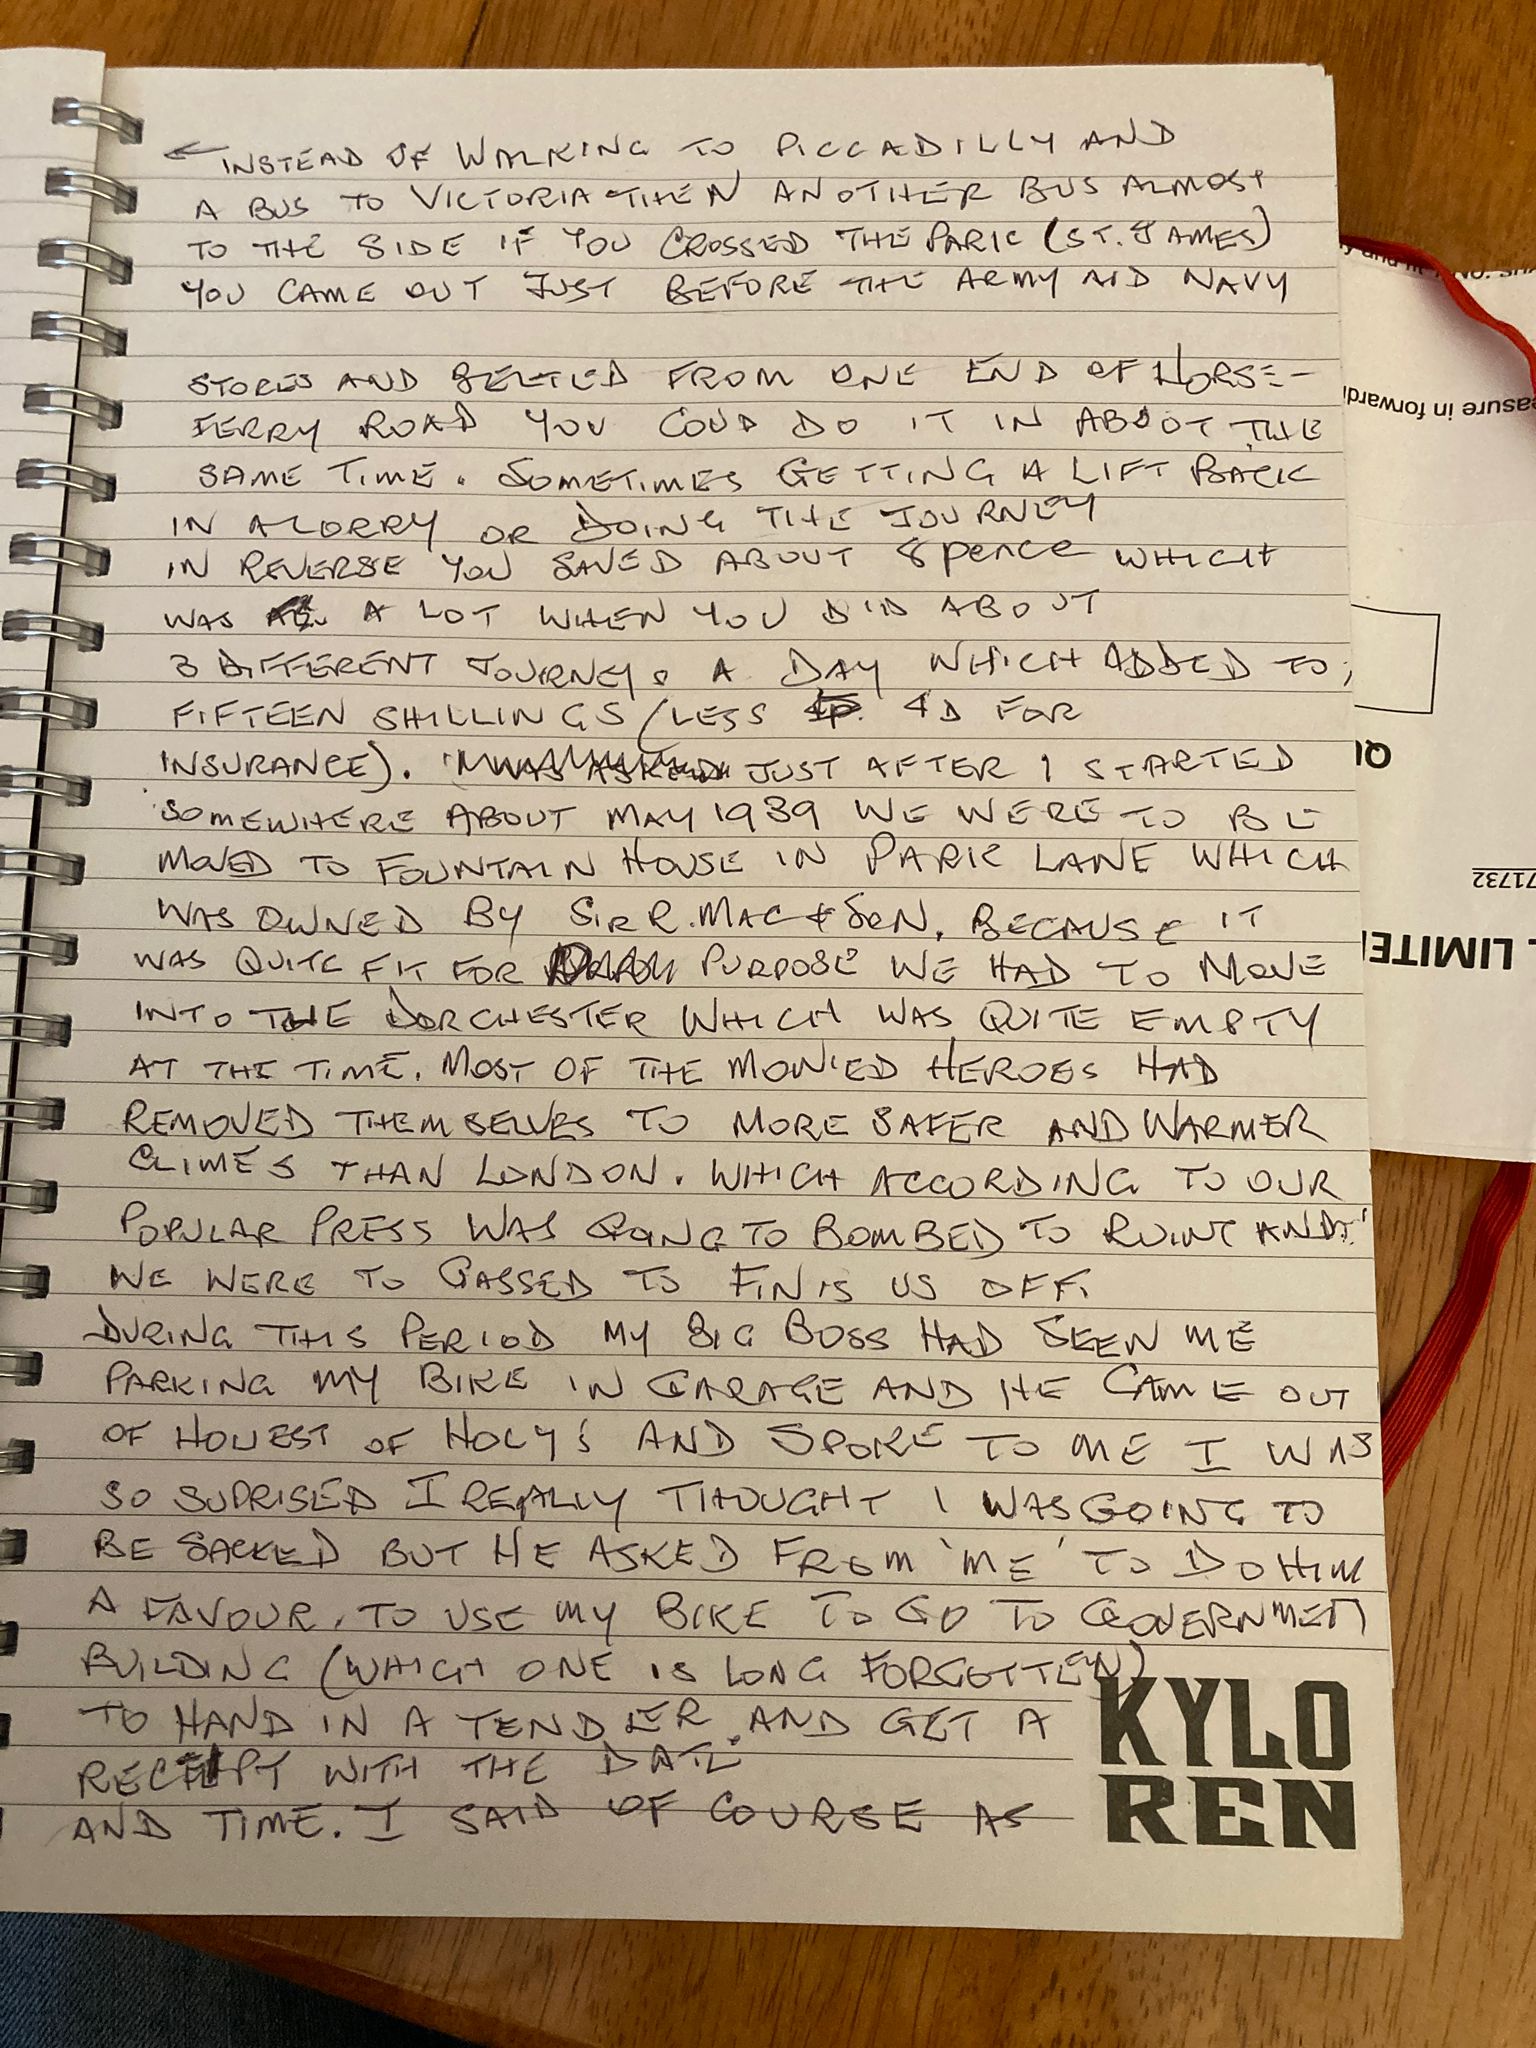 ← INSTEAD OF WALKING TO PICCADILLY AND
A BUS TO VICTORIA THEN ANOTHER BUS ALMOST
TO THE SIDE IF YOU CROSSED THE PARK (ST. JAMES)
YOU CAME OUT JUST BEFORE THE ARMY AD NAVY
STORES AND BELTED FROM ONE END OF HORSE-
FERRY ROAD YOU COUD DO IT IN ABOOT THE
SAME TIME. SOMETIMES GETTING A LIFT BACK
IN A LORRY OR DOING THE JOURNEY
IN REVERSE YOU SAVED ABOUT 8 pence WHICH
WAS A LOT WHEN YOU DID ABOUT
3 DIFFERENT JOURNEYS A DAY WHICH ADDED TO
FIFTEEN SHILLINGS (LESS 4D FOR
INSURANCE). JUST AFTER I STARTED
SOMEWHERE ABOUT MAY 1939 WE WERE TO BE
MOVED TO FOUNTAIN HOUSE IN PARK LANE WHICH
WAS OWNED BY SIR R. MAC & SON. BECAUSE IT
WAS QUITE FIT FOR PURPOSE WE HAD TO MOVE
INTO THE DORCHESTER WHICH WAS QUITE EMPTY
AT THE TIME. MOST OF THE MONIED HEROES HAD
REMOVED THEMSELVES TO MORE SAFER AND WARMER
CLIMES THAN LONDON. WHICH ACCORDING TO OUR
POPULAR PRESS WAS GOING TO BOMBED TO RUINS AND
WE WERE TO GASSED TO FINIS US OFF.
DURING THIS PERIOD MY BIG BOSS HAD SEEN ME
PARKING MY BIKE IN GARAGE AND HE CAME OUT
OF HOLIEST OF HOLY'S AND SPOKE TO ME I WAS
SO SUPRISED I REALLY THOUGHT I WAS GOING TO
BE SACKED BUT HE ASKED FROM 'ME' TO DO HIM
A FAVOUR. TO USE MY BIKE TO GO TO GOVERNMENT
BUILDING (WHICH ONE IS LONG FORGOTTEN)
TO HAND IN A TENDER AND GET A
RECEIPT WITH THE DATE
AND TIME. I SAID OF COURSE AS
KYLO
REN
71732
LIMITE